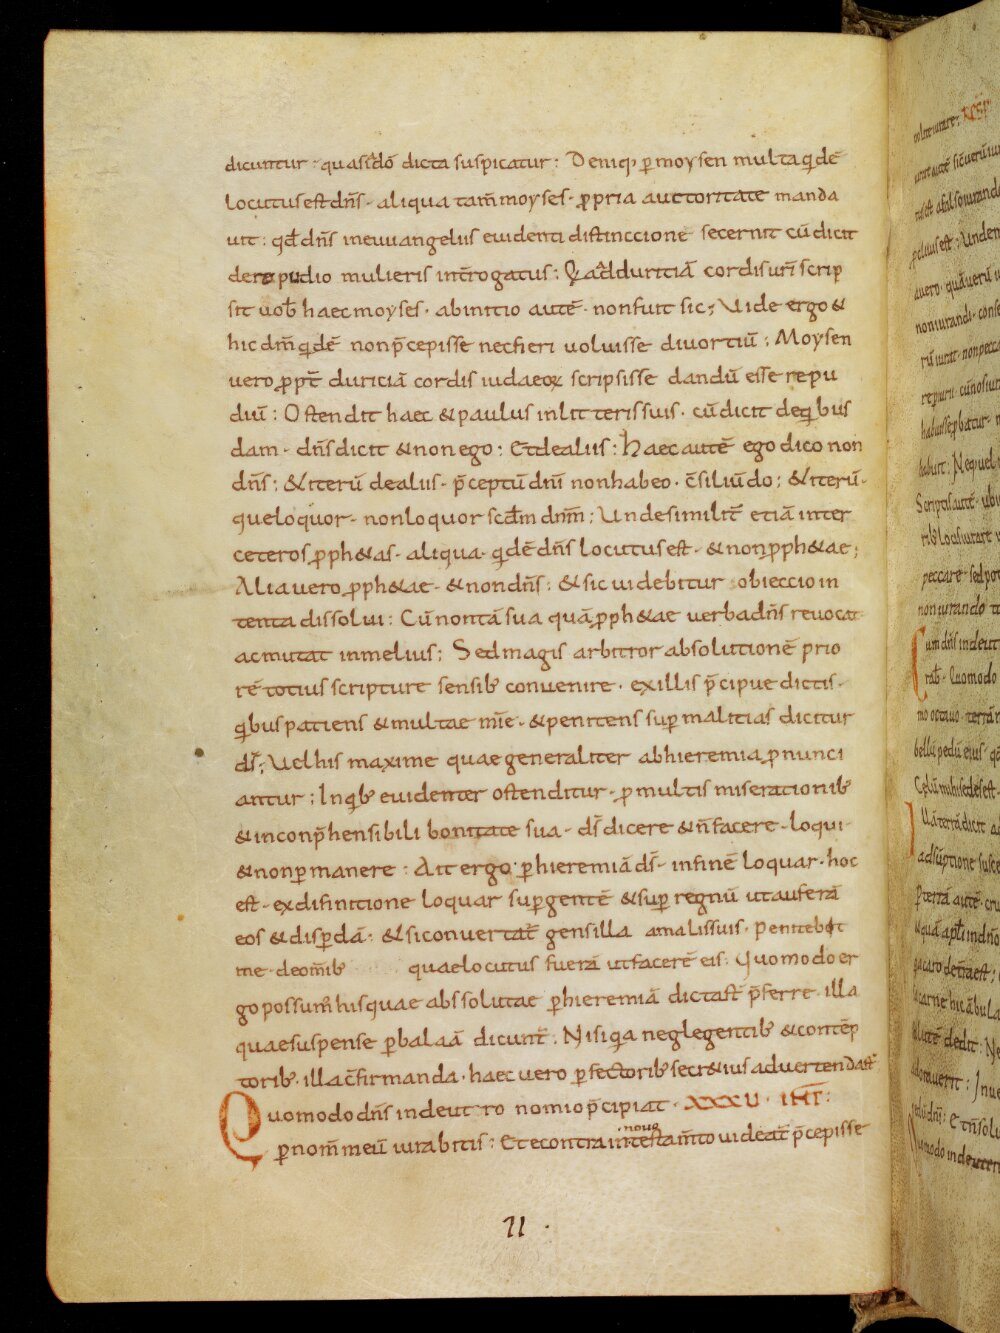 dicuntur · quasi dō dicta suspicatur : Deniq; ꝑ moysen multa qidē
locutus est dn̄s · aliqua tam̄ moyses · ꝓpria auctoritate manda
uit : qd̄ dn̄s in euuangeliis euidenti distinccione secernit cū dicit
de repudio mulieris int̄rogatus : Qa ad duritiā cordis ur̄i scrip
sit uob̄ haec moyses · ab initio autē · non fuit sic ; Uide ergo &
hic dn̄m qidē non p̄cepisse nec fieri uoluisse diuortiū ; Moysen
uero ꝓpt̄ duriciā cordis iudaeoꝝ scripsisse dandū esse repu
diū : Ostendit haec & paulus in litteris suis · cū dicit de qibus
dam · dn̄s dicit & non ego : Et de aliis : haec autē ego dico non
dn̄s ; & iterū de aliis · p̄ceptū dn̄i non habeo · c̄siliū do ; & iterū ·
que loquor · non loquor scd̄m dn̄m ; Unde similit̄ etiā inter
ceteros ꝓph&as · aliqua · qidē dn̄s locutus est · & non ꝓph&ae ;
Alia uero ꝓph&ae · & non dn̄s : & sic uidebitur obieccio in
tenta dissolui : Cū non tā sua quā ꝓph&ae uerba dn̄s reuocat
ac mutat in melius ; Sed magis arbitror absolutionē prio
rē totius scripture sensib; conuenire · ex illis p̄cipue dictis ·
qibus patiens & multae mīe · & penitens suꝑ malitias dicitur
dſ̄ ; Uel his maxime quae generaliter ab hieremia ꝓnunci
antur ; In qib; euidenter ostenditur · ꝑ multis miserationib;
& inconp̄hensibili bonitate sua · dſ̄ dicere & n̄ facere · loqui ·
& non ꝑmanere : Ait ergo ꝑ hieremiā dſ̄ · in finē loquar · hoc
est · ex difinitione loquar suꝑ gentē & suꝑ regnū ut auferā
eos & disꝑdā · & si conuertat̄ gens illa a malis suis · penitebit
me · de om̄ib; quae locutus fuerā ut facerē eis · Quomodo er
go possum̄ his quae absolutae ꝑ hieremiā dicta st̄ p̄ferre · illa
quae suspense ꝑ balaā dicunt̄ : Nisi qia neglegentib; & contēp
torib; · illa c̄firmanda · haec uero ꝑfectorib; secr&ius aduertenda st̄ :
Quomodo dn̄s in deutronomio p̄cipiat · XXXU · IIII :
ꝑ nom̄ meū iurabitis : Et e contra in nouo testam̄to uideat̄ p̄cepisse
71 ·